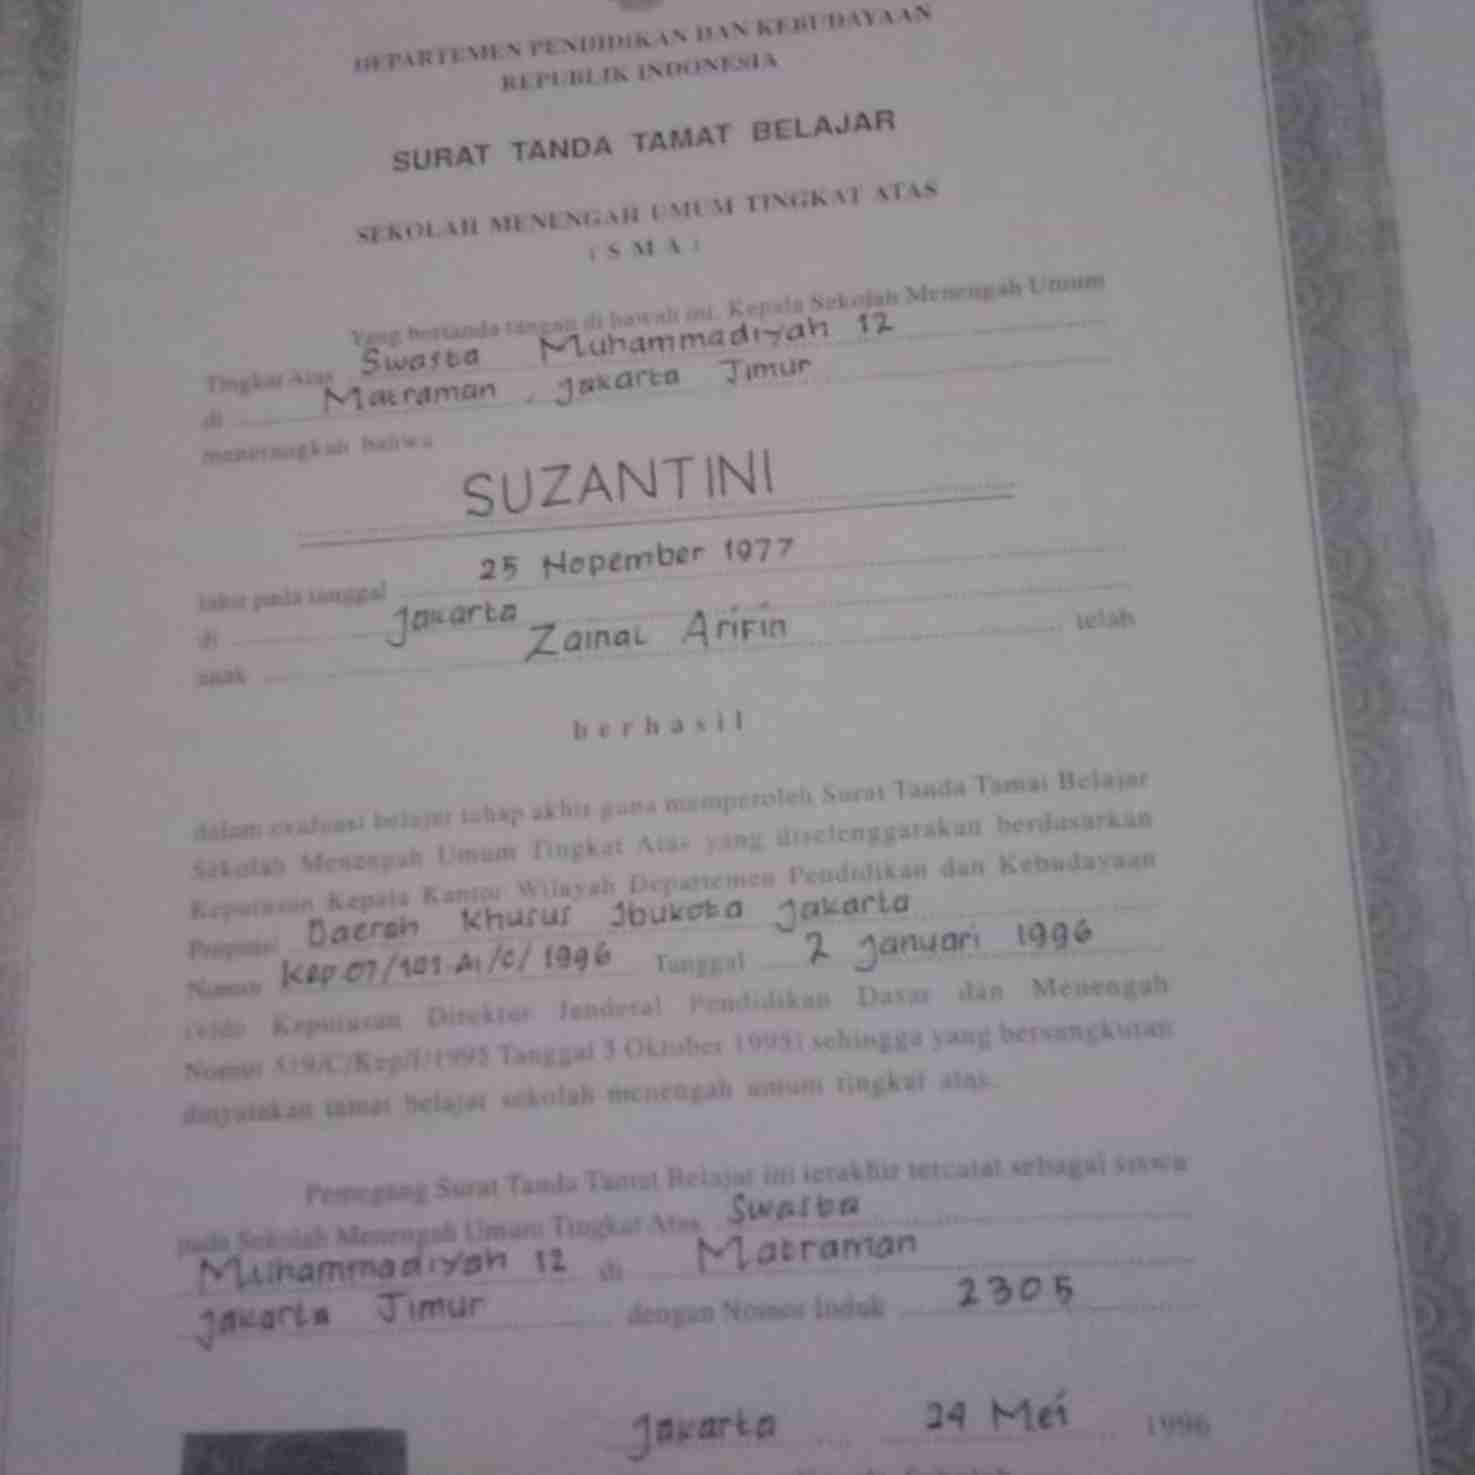 DEPARTEMEN PENDIDIKAN DAN KEBUDAYAAN
REPUBLIK INDONESIA
SURAT TANDA TAMAT BELAJAR
SEKOLAH MENENGAH UMUM TINGKAT ATAS
( S M A )
Yang bertanda tangan di bawah ini, Kepala Sekolah Menengah Umum
Tingkat Atas Swasta Muhammadiyah 12
di Matraman, Jakarta Timur
menerangkan bahwa
SUZANTINI
lahir pada tanggal 25 Nopember 1977
di Jakarta
anak Zainal Arifin telah
berhasil
dalam evaluasi belajar tahap akhir guna memperoleh Surat Tanda Tamat Belajar
Sekolah Menengah Umum Tingkat Atas yang diselenggarakan berdasarkan
Keputusan Kepala Kantor Wilayah Departemen Pendidikan dan Kebudayaan
Propinsi Daerah Khusus Ibukota Jakarta
Nomor Kep.07/101.A1/C/1996 Tanggal 2 Januari 1996
Keputusan Direktur Jenderal Pendidikan Dasar dan Menengah
Nomor Tanggal 3 Oktober 1995) sehingga yang bersangkutan
dinyatakan tamat belajar sekolah menengah umum tingkat atas.
Pemegang Surat Tanda Tamat Belajar ini terakhir tercatat sebagai siswa
pada Sekolah Menengah Umum Tingkat Atas Swasta
Muhammadiyah 12 di Matraman
Jakarta Timur dengan Nomor Induk 2305
Jakarta 24 Mei 1996